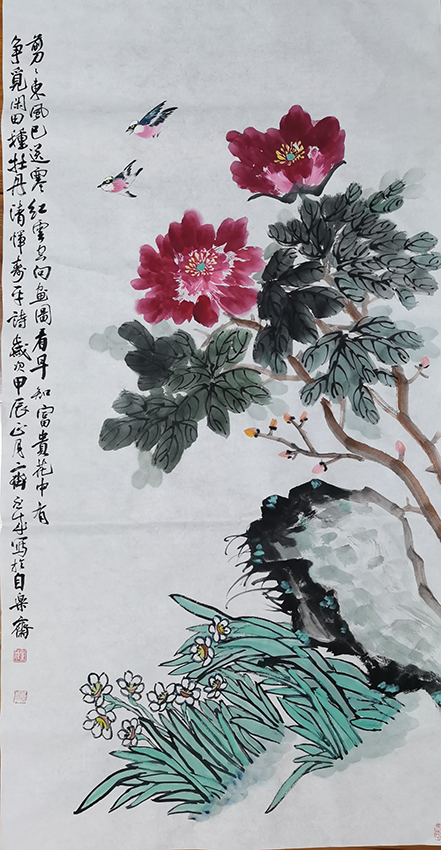 剪々東風已送寒 紅雲只向畫圖看 早知富貴花中有
争覓閑田種牡丹 清惲壽平詩 歲次甲辰正月 寫於自樂齋